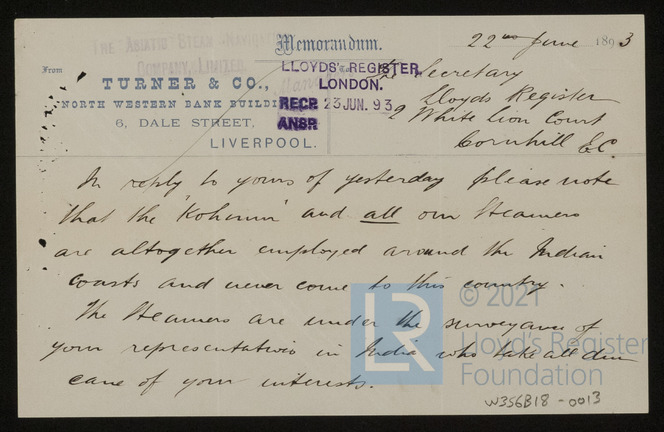 THE "ASIATIC" STEAM NAVIGATION
COMPANY, LIMITED.
Memorandum.
22nd June 1893
From
TURNER & CO.,
NORTH WESTERN BANK BUILDI
6, DALE STREET,
LIVERPOOL.
LLOYDS' REGISTER,
LONDON.
RECD 23 JUN. 93
ANSR
Secretary
Lloyds Register
2 White Lion Court
Cornhill EC.
In reply to yours of yesterday please note
that the "Kohinur" and all our Steamers
are altogether employed around the Indian
coasts and never come to this country.
The Steamers are under the surveyance of
your representatives in India who take all due
care of your interests.
LR
© 2021
Lloyd's Register
Foundation
W356B18-0013